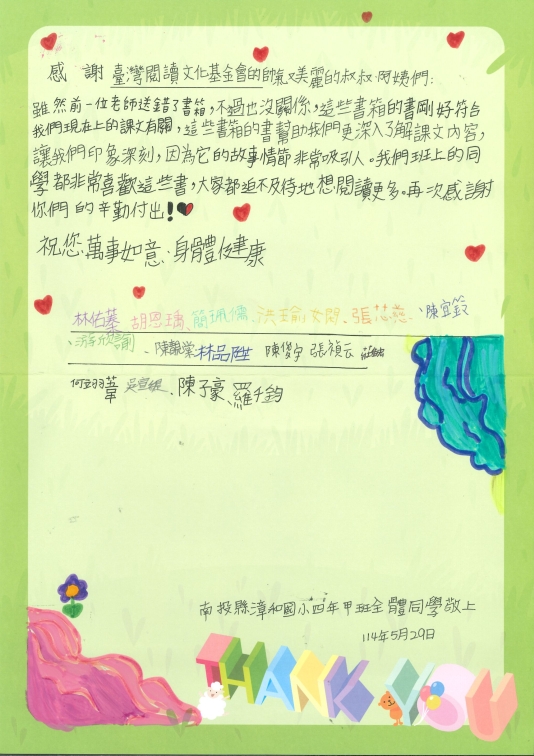 感 謝 臺灣閱讀文化基金會的帥氣又美麗的叔叔、阿姨們:
雖然前一位老師送錯了書箱,不過也沒關係,這些書箱的書剛好符合
我們現在上的課文有關,這些書箱的書幫助我們更深入了解課文內容,
讓我們印象深刻,因為它的故事情節非常吸引人。我們班上的同
學都非常喜歡這些書,大家都迫不及待地想閱讀更多。再次感謝
你們的辛勤付出!
祝您萬事如意、身體健康
林佑蓁、胡恩瑀、簡珮儒、洪、張芯慈、陳宜
林品陞 陳 張禎云
陳子豪、羅千鈞
南投縣漳和國小四年甲班全體同學敬上
114年5月29日
THANK YOU